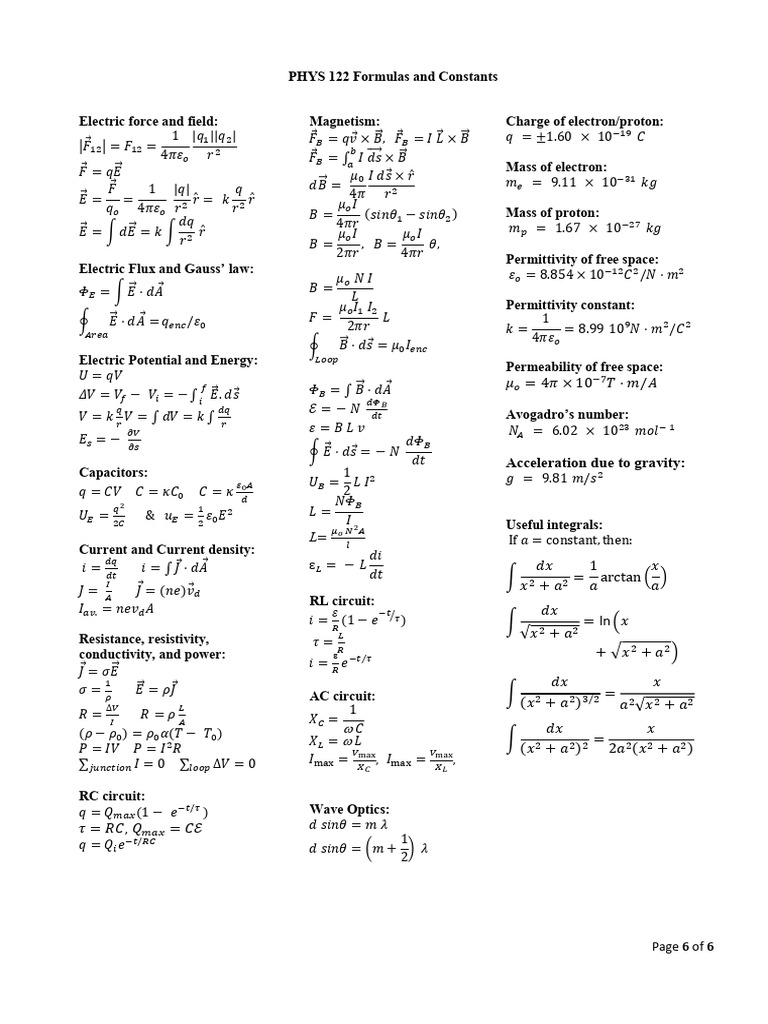 PHYS 122 Formulas and Constants
Electric force and field:
|F⃗₁₂| = F₁₂ = 1/(4πεₒ) |q₁||q₂|/r²
F⃗ = qE⃗
E⃗ = F⃗/qₒ = 1/(4πεₒ) |q|/r² r̂ = k q/r² r̂
E⃗ = ∫ dE⃗ = k ∫ dq/r² r̂
Electric Flux and Gauss’ law:
Φ_E = ∫ E⃗ · dA⃗
∮_Area E⃗ · dA⃗ = q_enc/ε₀
Electric Potential and Energy:
U = qV
ΔV = V_f − V_i = −∫_i^f E⃗. ds⃗
V = k q/r V = ∫ dV = k ∫ dq/r
E_s = − ∂V/∂s
Capacitors:
q = CV C = κC₀ C = κ ε₀A/d
U_E = q²/2C & u_E = 1/2 ε₀E²
Current and Current density:
i = dq/dt i = ∫ J⃗ · dA⃗
J = I/A J⃗ = (ne)v⃗_d
I_av. = nev_dA
Resistance, resistivity,
conductivity, and power:
J⃗ = σE⃗
σ = 1/ρ E⃗ = ρJ⃗
R = ΔV/I R = ρ L/A
(ρ − ρ₀) = ρ₀α(T − T₀)
P = IV P = I²R
∑_junction I = 0 ∑_loop ΔV = 0
RC circuit:
q = Q_max(1 − e^(−t/τ))
τ = RC, Q_max = Cℰ
q = Q_i e^(−t/RC)
Magnetism:
F⃗_B = qv⃗ × B⃗, F⃗_B = I L⃗ × B⃗
F⃗_B = ∫_a^b I ds⃗ × B⃗
dB⃗ = μ₀/4π I ds⃗ × r̂/r²
B = μₒI/4πr (sinθ₁ − sinθ₂)
B = μₒI/2πr, B = μₒI/4πr θ,
B = μₒ N I/L
F = μₒI₁ I₂/2πr L
∮_Loop B⃗ · ds⃗ = μ₀I_enc
Φ_B = ∫ B⃗ · dA⃗
ℰ = − N dΦ_B/dt
ε = B L v
∮ E⃗ · ds⃗ = −N dΦ_B/dt
U_B = 1/2 L I²
L = NΦ_B/I
L= μₒ N²A/l
ε_L = − L di/dt
RL circuit:
i = ℰ/R (1 − e^(−t/τ))
τ = L/R
i = ε/R e^(−t/τ)
AC circuit:
X_C = 1/ωC
X_L = ωL
I_max = V_max/X_C, I_max = V_max/X_L,
Wave Optics:
d sinθ = m λ
d sinθ = (m + 1/2) λ
Charge of electron/proton:
q = ±1.60 × 10⁻¹⁹ C
Mass of electron:
m_e = 9.11 × 10⁻³¹ kg
Mass of proton:
m_p = 1.67 × 10⁻²⁷ kg
Permittivity of free space:
εₒ = 8.854 × 10⁻¹²C²/N · m²
Permittivity constant:
k = 1/(4πεₒ) = 8.99 10⁹N · m²/C²
Permeability of free space:
μₒ = 4π × 10⁻⁷T · m/A
Avogadro’s number:
N_A = 6.02 × 10²³ mol⁻¹
Acceleration due to gravity:
g = 9.81 m/s²
Useful integrals:
If a = constant, then:
∫ dx/(x² + a²) = 1/a arctan (x/a)
∫ dx/√(x² + a²) = ln (x
+ √(x² + a²))
∫ dx/(x² + a²)^(3/2) = x/(a²√(x² + a²))
∫ dx/(x² + a²)² = x/(2a²(x² + a²))
Page 6 of 6